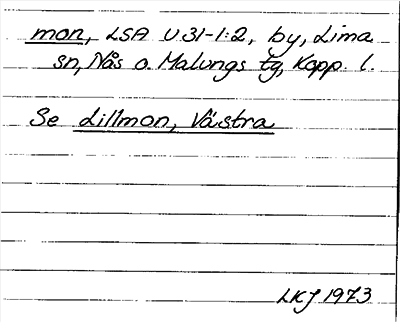 mon, LSA U 31-1:2, by, Lima
sn, Nås o. Malungs tg, Kopp. l.
Se Lillmon, Västra
LKJ 1973